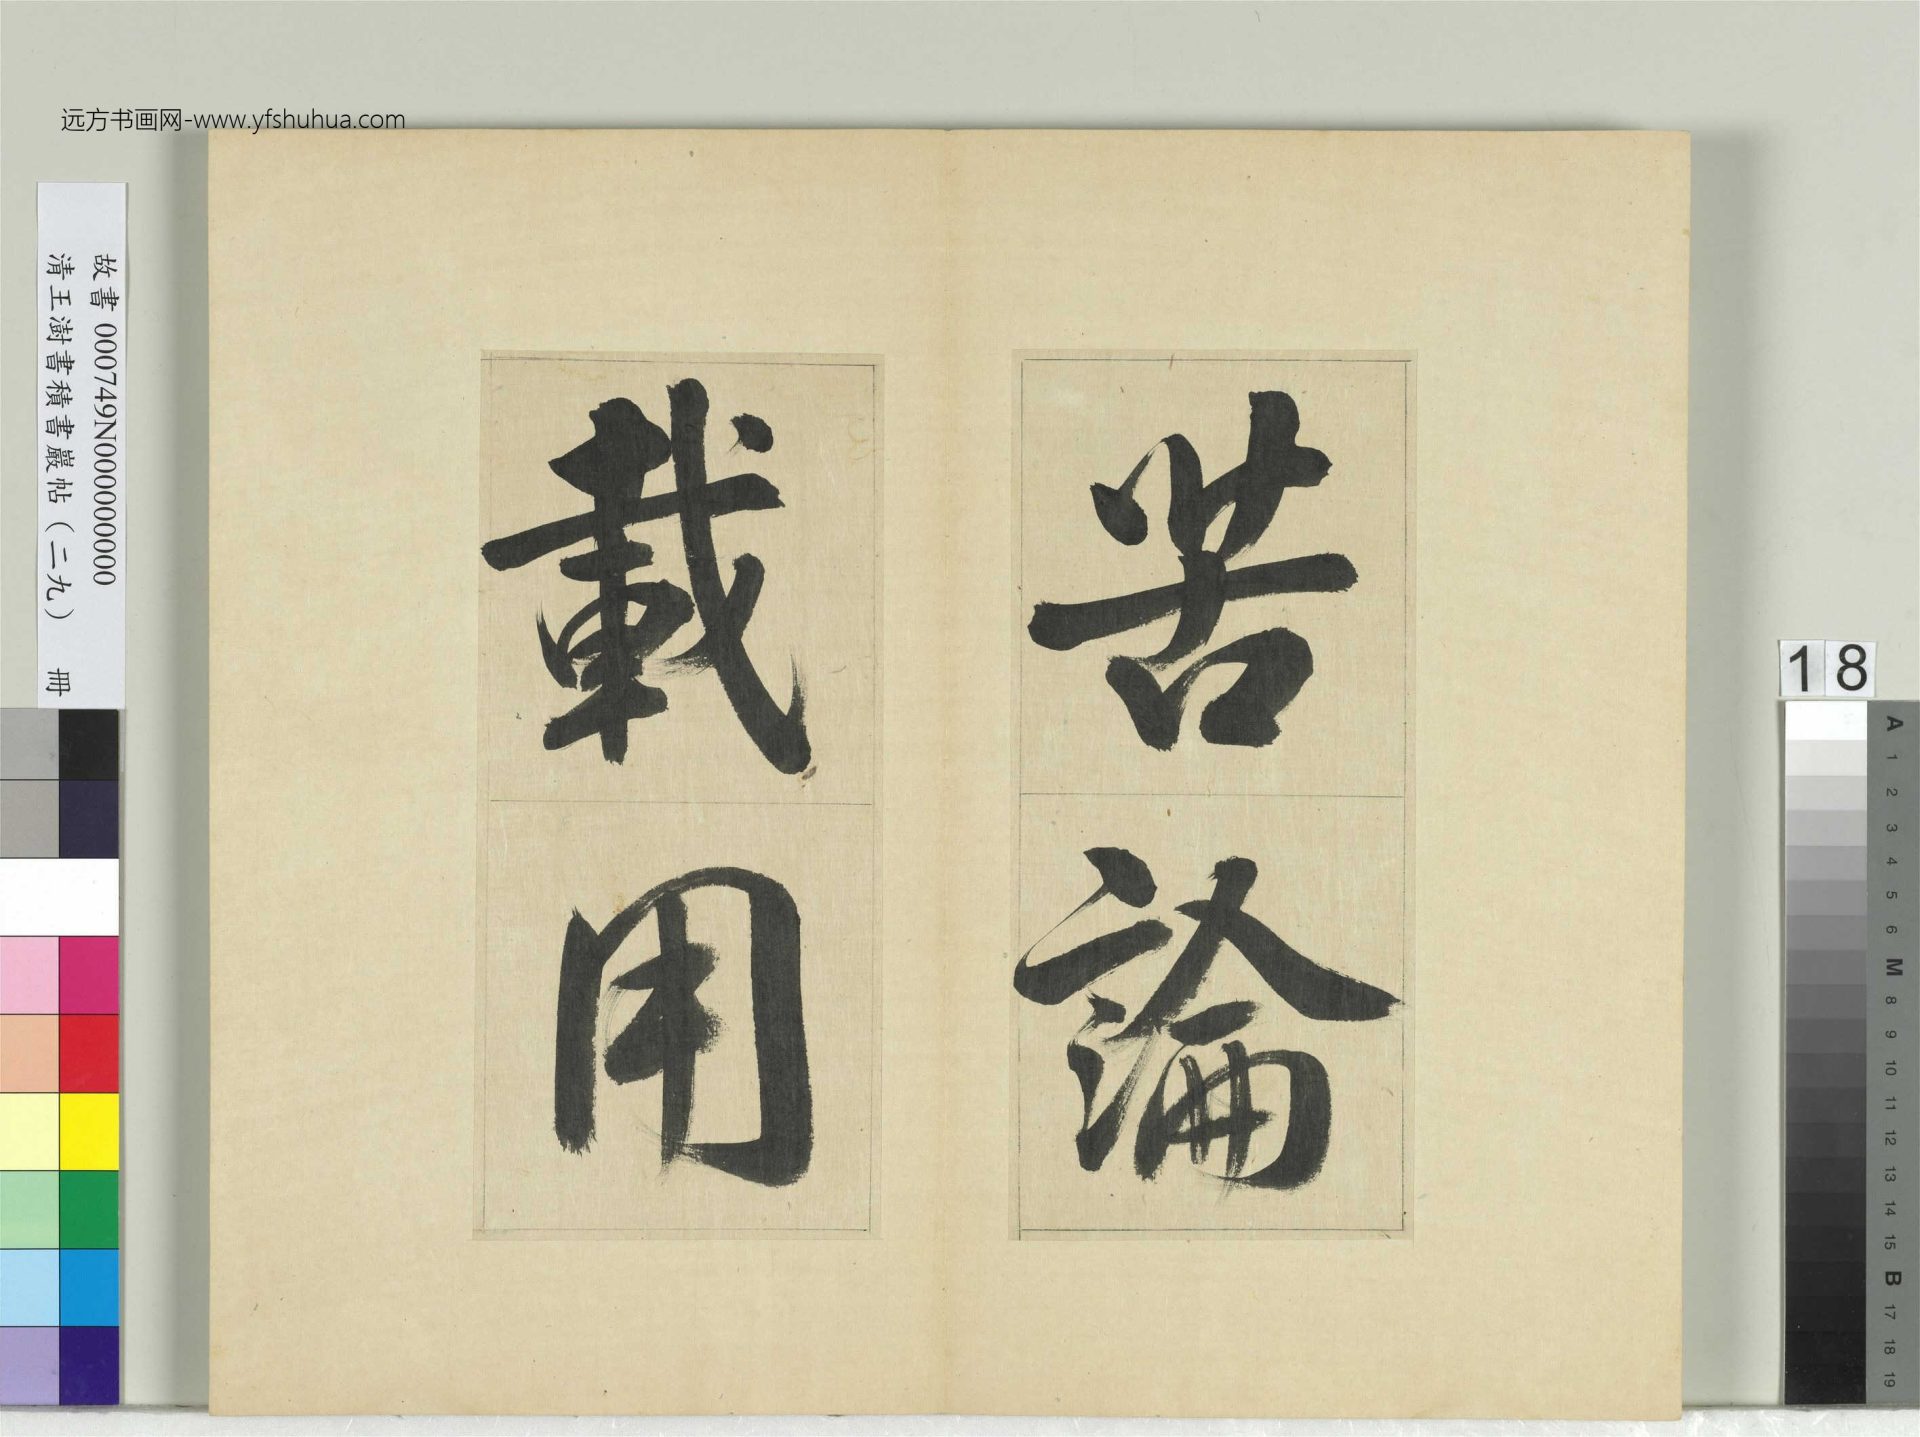 远方书画网-www.yfshuhua.com
故書 000749N000000000
清王澍書積書巖帖（二九） 冊
苦論
載用
18
A
1
2
3
4
5
6
M
8
9
10
11
12
13
14
15
B
17
18
19